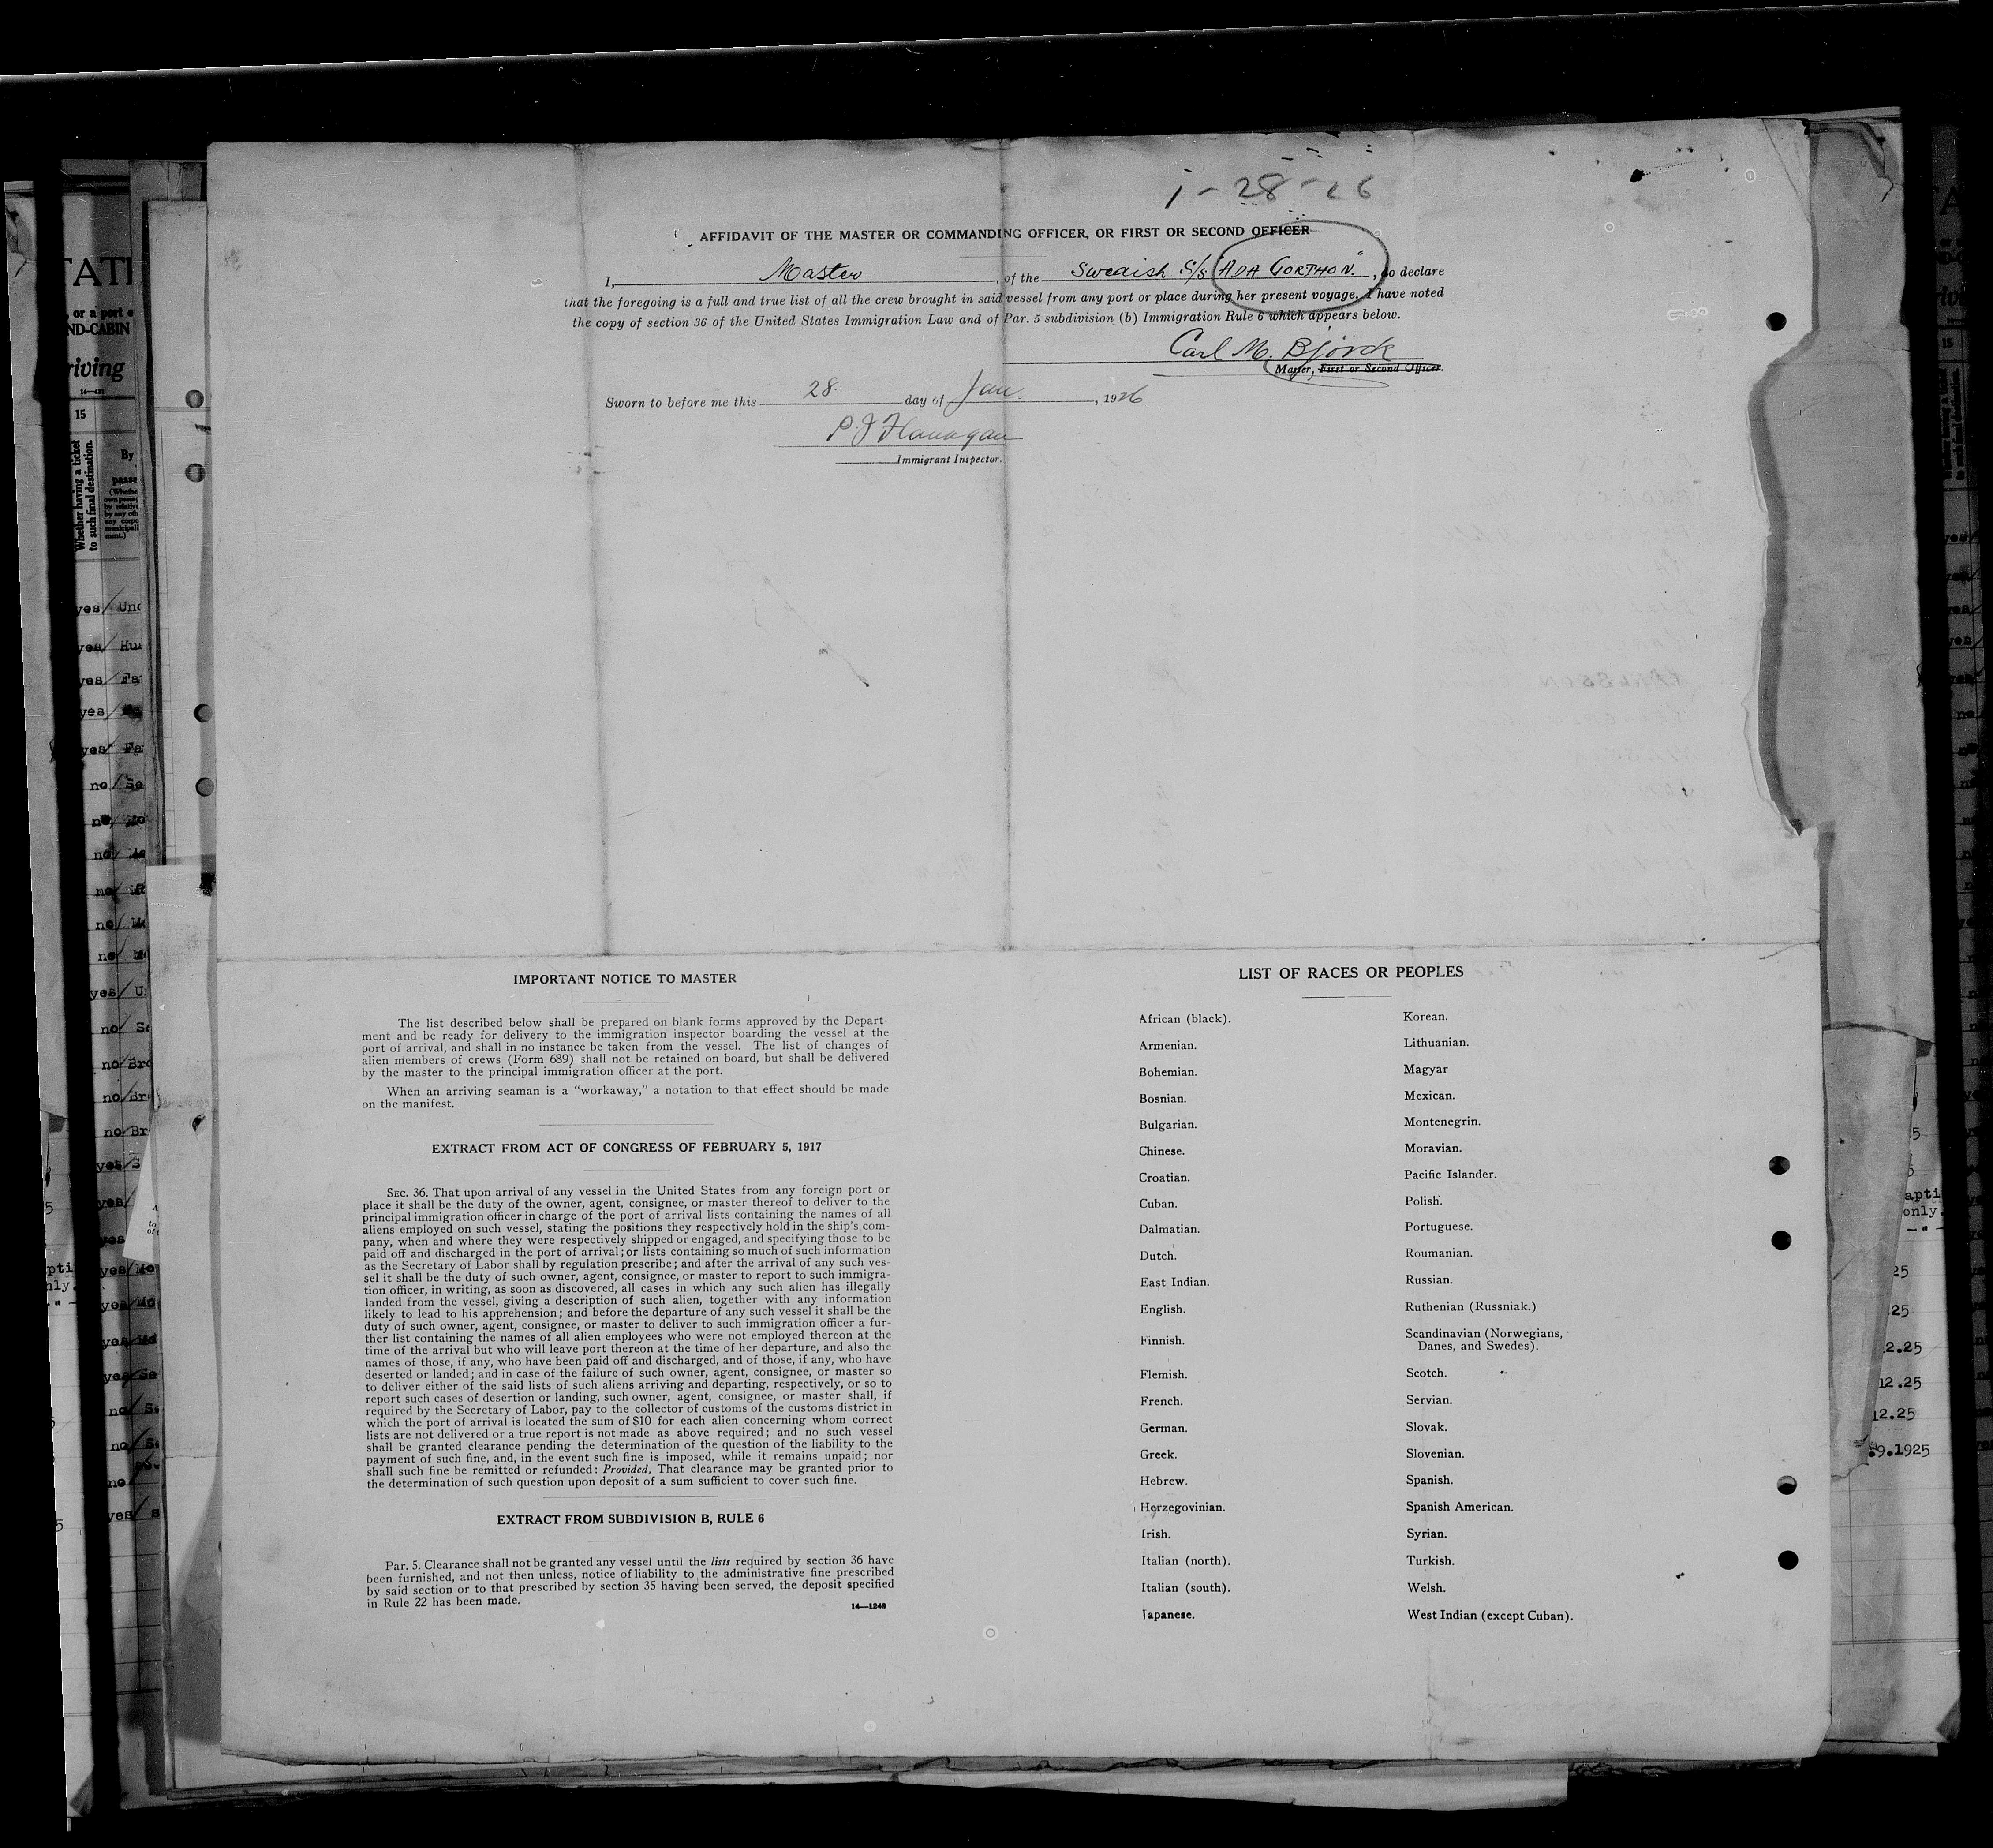 1-28-26
AFFIDAVIT OF THE MASTER OR COMMANDING OFFICER, OR FIRST OR SECOND OFFICER
I, Master, of the Swedish S/S "ADA GORTHON.", do declare
that the foregoing is a full and true list of all the crew brought in said vessel from any port or place during her present voyage. I have noted
the copy of section 36 of the United States Immigration Law and of Par. 5 subdivision (b) Immigration Rule 6 which appears below.
Carl M. Bjorck
Master, First or Second Officer.
Sworn to before me this 28. day of Jan., 1926
P J Flanagan
Immigrant Inspector.
IMPORTANT NOTICE TO MASTER
The list described below shall be prepared on blank forms approved by the Depart-
ment and be ready for delivery to the immigration inspector boarding the vessel at the
port of arrival, and shall in no instance be taken from the vessel. The list of changes of
alien members of crews (Form 689) shall not be retained on board, but shall be delivered
by the master to the principal immigration officer at the port.
When an arriving seaman is a "workaway," a notation to that effect should be made
on the manifest.
EXTRACT FROM ACT OF CONGRESS OF FEBRUARY 5, 1917
SEC. 36. That upon arrival of any vessel in the United States from any foreign port or
place it shall be the duty of the owner, agent, consignee, or master thereof to deliver to the
principal immigration officer in charge of the port of arrival lists containing the names of all
aliens employed on such vessel, stating the positions they respectively hold in the ship's com-
pany, when and where they were respectively shipped or engaged, and specifying those to be
paid off and discharged in the port of arrival; or lists containing so much of such information
as the Secretary of Labor shall by regulation prescribe; and after the arrival of any such ves-
sel it shall be the duty of such owner, agent, consignee, or master to report to such immigra-
tion officer, in writing, as soon as discovered, all cases in which any such alien has illegally
landed from the vessel, giving a description of such alien, together with any information
likely to lead to his apprehension; and before the departure of any such vessel it shall be the
duty of such owner, agent, consignee, or master to deliver to such immigration officer a fur-
ther list containing the names of all alien employees who were not employed thereon at the
time of the arrival but who will leave port thereon at the time of her departure, and also the
names of those, if any, who have been paid off and discharged, and of those, if any, who have
deserted or landed; and in case of the failure of such owner, agent, consignee, or master so
to deliver either of the said lists of such aliens arriving and departing, respectively, or so to
report such cases of desertion or landing, such owner, agent, consignee, or master shall, if
required by the Secretary of Labor, pay to the collector of customs of the customs district in
which the port of arrival is located the sum of $10 for each alien concerning whom correct
lists are not delivered or a true report is not made as above required; and no such vessel
shall be granted clearance pending the determination of the question of the liability to the
payment of such fine, and, in the event such fine is imposed, while it remains unpaid; nor
shall such fine be remitted or refunded: Provided, That clearance may be granted prior to
the determination of such question upon deposit of a sum sufficient to cover such fine.
EXTRACT FROM SUBDIVISION B, RULE 6
Par. 5. Clearance shall not be granted any vessel until the lists required by section 36 have
been furnished, and not then unless, notice of liability to the administrative fine prescribed
by said section or to that prescribed by section 35 having been served, the deposit specified
in Rule 22 has been made.
14—1240
LIST OF RACES OR PEOPLES
African (black).
Armenian.
Bohemian.
Bosnian.
Bulgarian.
Chinese.
Croatian.
Cuban.
Dalmatian.
Dutch.
East Indian.
English.
Finnish.
Flemish.
French.
German.
Greek.
Hebrew.
Herzegovinian.
Irish.
Italian (north).
Italian (south).
Japanese.
Korean.
Lithuanian.
Magyar
Mexican.
Montenegrin.
Moravian.
Pacific Islander.
Polish.
Portuguese.
Roumanian.
Russian.
Ruthenian (Russniak.)
Scandinavian (Norwegians,
Danes, and Swedes).
Scotch.
Servian.
Slovak.
Slovenian.
Spanish.
Spanish American.
Syrian.
Turkish.
Welsh.
West Indian (except Cuban).